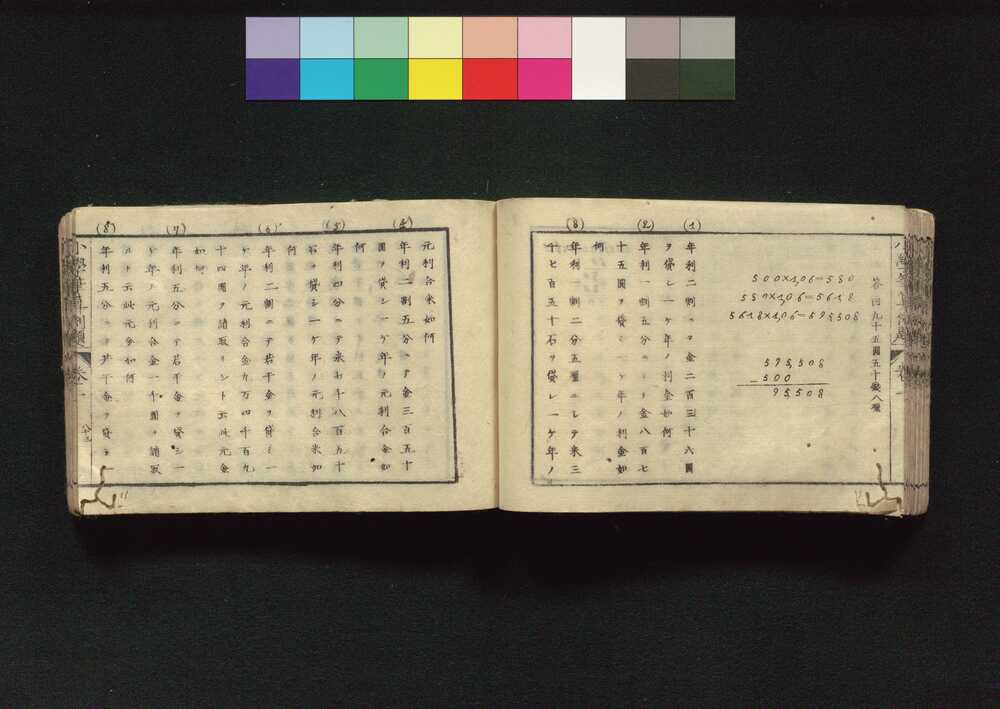 答四九十五圓五十錢八厘
500×1,06=530
530×1,06=5618
5618×1,06=595,508
595,508
-500
95,508
(1)
年利二割ニテ金二百三十六圓
ヲ貸シ一ケ年ノ利金如何
(2)
年利一割五分ニテ金八百七
十五圓ヲ貸シ一ケ年ノ利金如
何
(3)
年利一割二分五厘ニシテ米三
千七百五十石ヲ貸シ一ケ年ノ
元利合米如何
(4)
年利二割五分ニテ金三百五十
圓ヲ貸シ一ケ年ノ元利合金如
何
(5)
年利四分ニテ米七千八百九十
石ヲ貸シ一ケ年ノ元利合米如
何
(6)
年利二割ニテ若干金ヲ貸シ一
ケ年ノ元利合金九万四千百九
十四圓ヲ請取リシト云此元金
如何
(7)
年利五分ニテ若干金ヲ貸シ一
ケ年ノ元利合金一千圓ヲ請取
ルト云此元金如何
(8)
年利五分ニテ若干金ヲ貸シ一
卷一